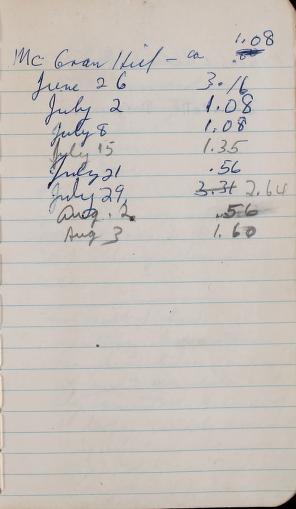 1.08
Mc Gran Hill - co
June 26 3.16
July 2 1.08
July 8 1.08
July 15 1.35
July 21 .56
July 29 3.31 2.64
Aug. 2. .56
Aug 3 1.60